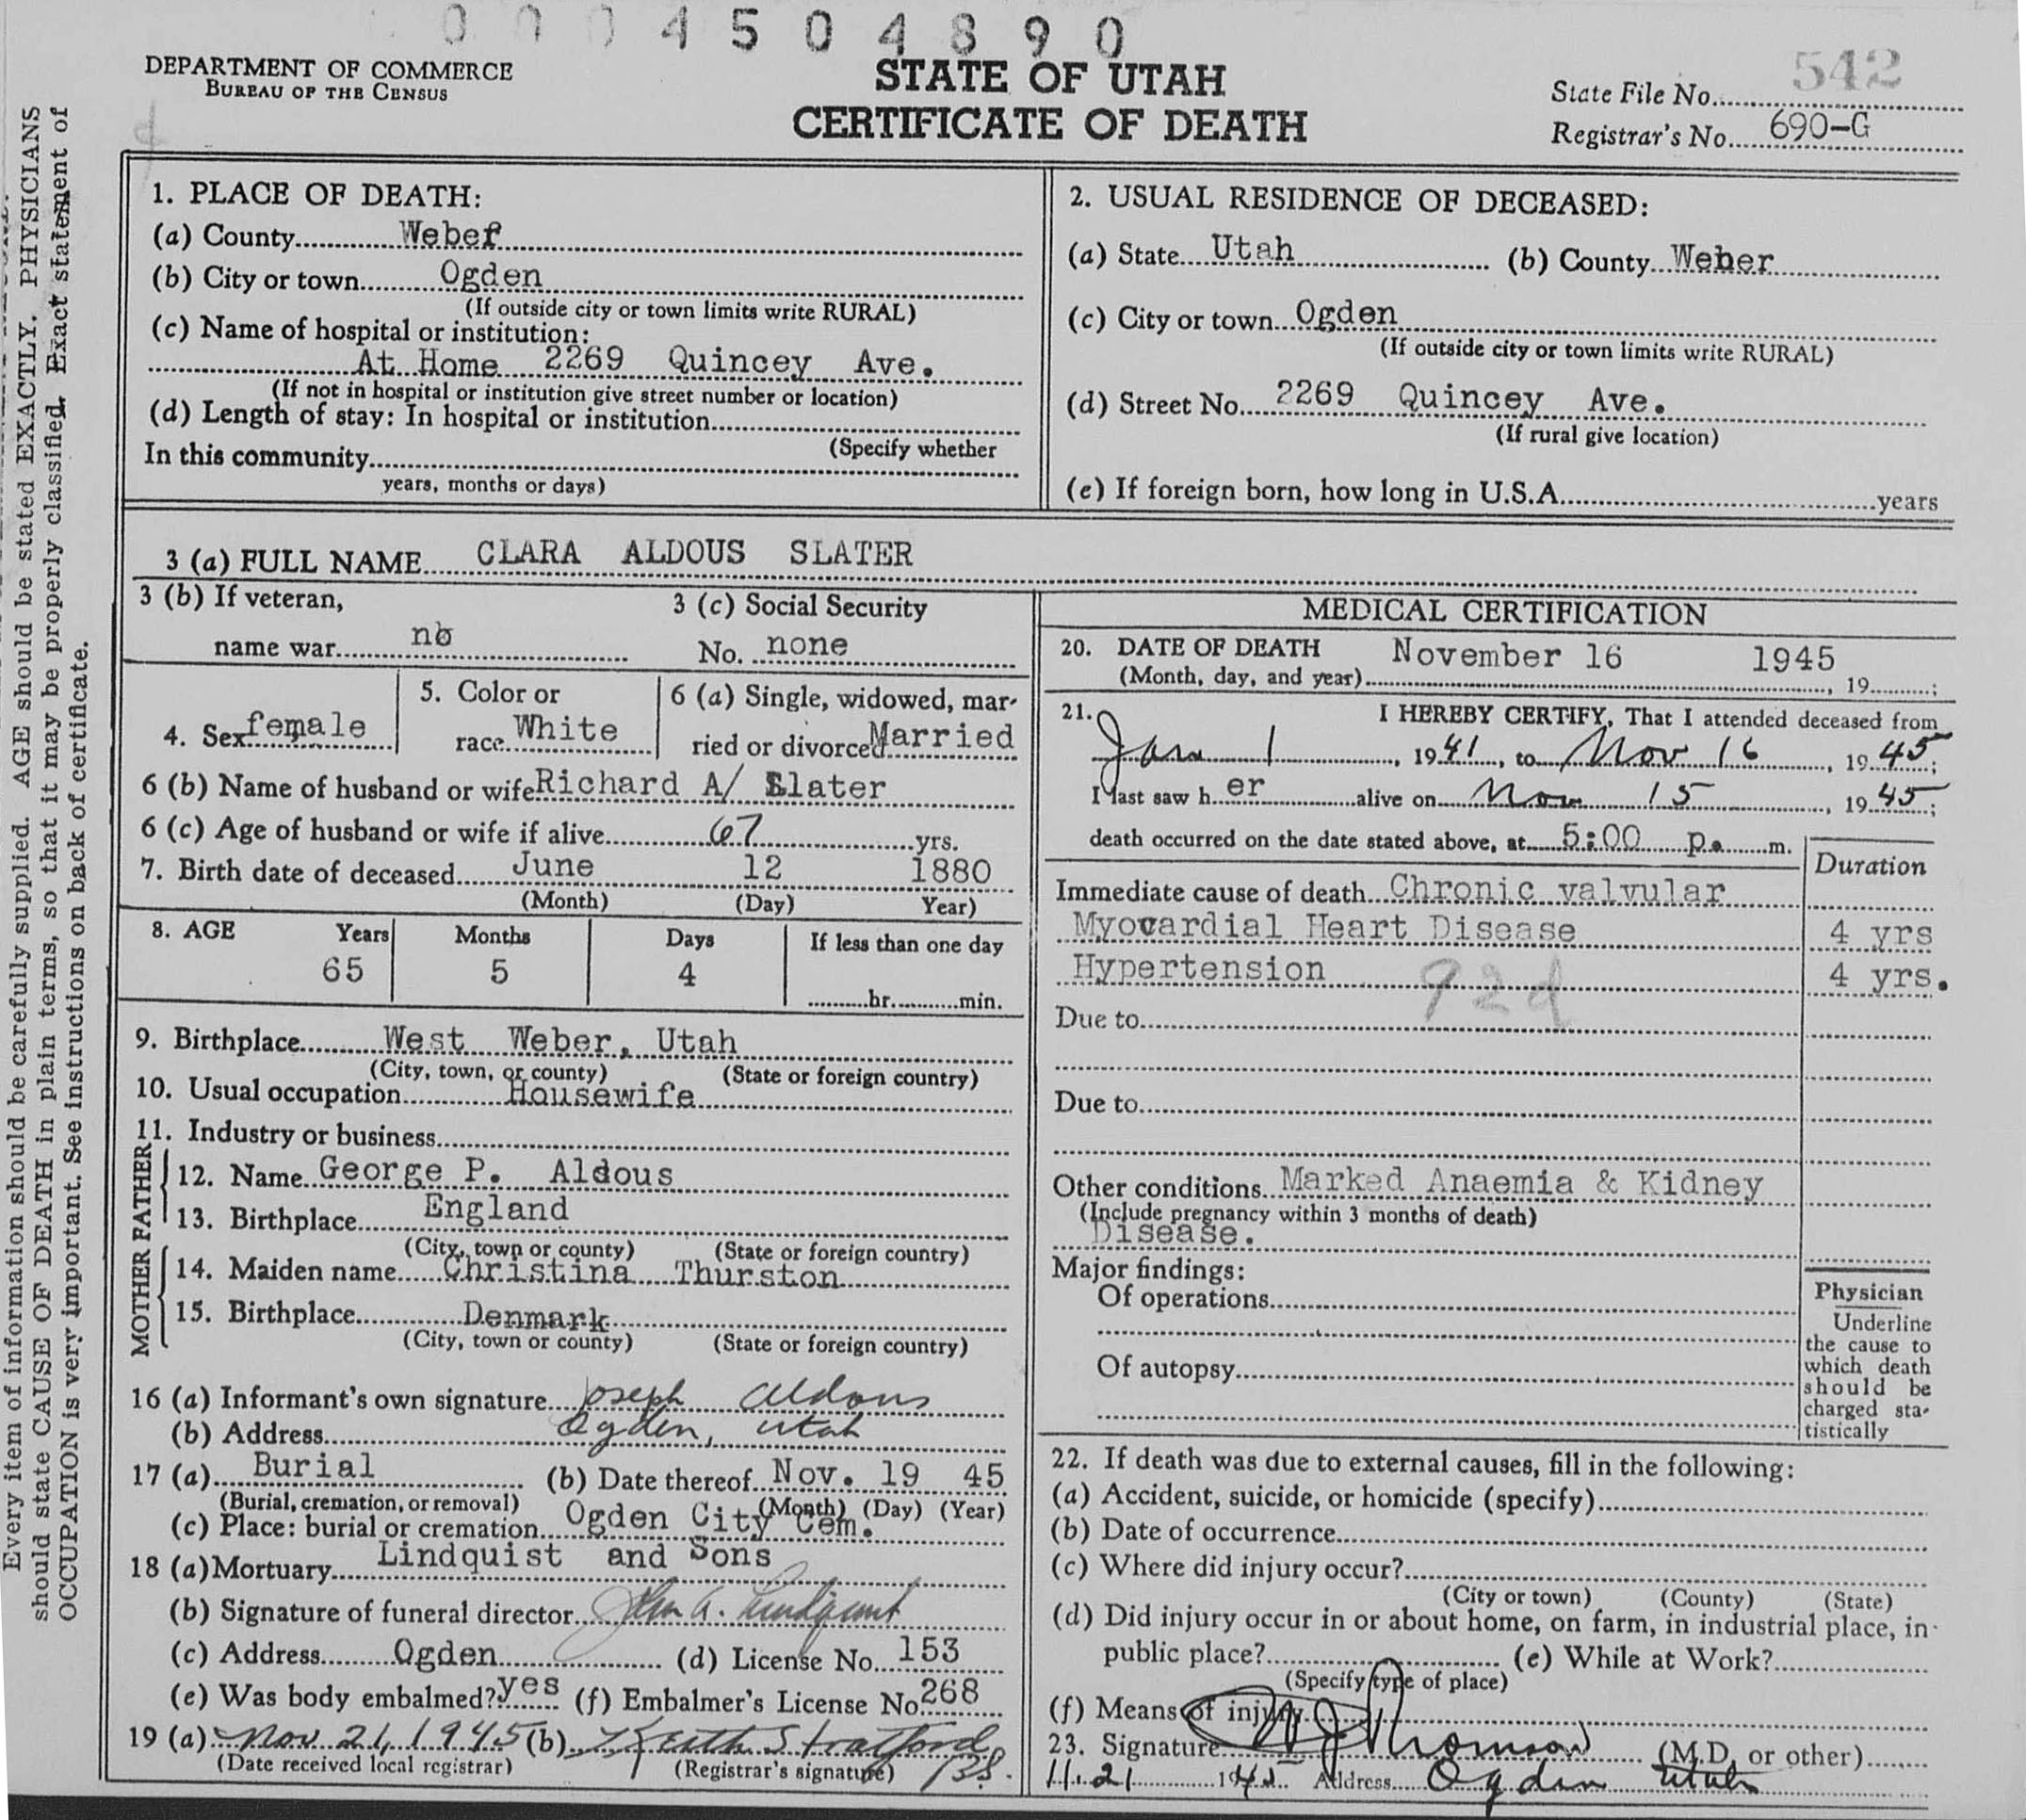 0 0 0 4 5 0 4 8 9 0
DEPARTMENT OF COMMERCE
BUREAU OF THE CENSUS
STATE OF UTAH
CERTIFICATE OF DEATH
State File No. 542
Registrar's No. 690-G
Every item of information should be carefully supplied. AGE should be stated EXACTLY. PHYSICIANS
should state CAUSE OF DEATH in plain terms, so that it may be properly classified. Exact statement of
OCCUPATION is very important. See instructions on back of certificate.
1. PLACE OF DEATH:
(a) County Weber
(b) City or town Ogden
(If outside city or town limits write RURAL)
(c) Name of hospital or institution:
At Home 2269 Quincey Ave.
(If not in hospital or institution give street number or location)
(d) Length of stay: In hospital or institution
(Specify whether
In this community
years, months or days)
2. USUAL RESIDENCE OF DECEASED:
(a) State Utah (b) County Weber
(c) City or town Ogden
(If outside city or town limits write RURAL)
(d) Street No. 2269 Quincey Ave.
(If rural give location)
(e) If foreign born, how long in U.S.A. years
3 (a) FULL NAME CLARA ALDOUS SLATER
3 (b) If veteran,
name war no
3 (c) Social Security
No. none
4. Sex female
5. Color or
race White
6 (a) Single, widowed, mar-
ried or divorced Married
6 (b) Name of husband or wife Richard A/ Slater
6 (c) Age of husband or wife if alive 67 yrs.
7. Birth date of deceased June 12 1880
(Month) (Day) Year)
8. AGE Years Months Days If less than one day
65 5 4
hr. min.
9. Birthplace West Weber, Utah
(City, town, or county) (State or foreign country)
10. Usual occupation Housewife
11. Industry or business
FATHER
12. Name George P. Aldous
13. Birthplace England
(City, town or county) (State or foreign country)
MOTHER
14. Maiden name Christina Thurston
15. Birthplace Denmark
(City, town or county) (State or foreign country)
16 (a) Informant's own signature Joseph Aldous
(b) Address Ogden, Utah
17 (a) Burial (b) Date thereof Nov. 19 45
(Burial, cremation, or removal) (Month) (Day) (Year)
(c) Place: burial or cremation Ogden City Cem.
18 (a) Mortuary Lindquist and Sons
(b) Signature of funeral director John A. Lindquist
(c) Address Ogden (d) License No. 153
(e) Was body embalmed? yes (f) Embalmer's License No. 268
19 (a) Nov 21, 1945 (b) Keith Stratford
(Date received local registrar) (Registrar's signature) BS.
MEDICAL CERTIFICATION
20. DATE OF DEATH November 16 1945
(Month, day, and year) , 19 ;
21. I HEREBY CERTIFY, That I attended deceased from
Jan 1 , 1941, to Nov 16 , 1945;
I last saw h er alive on Nov 15 , 1945;
death occurred on the date stated above, at 5:00 p. m.
Duration
Immediate cause of death Chronic valvular
Myocardial Heart Disease 4 yrs
Hypertension 92d 4 yrs.
Due to
Due to
Other conditions Marked Anaemia & Kidney
(Include pregnancy within 3 months of death)
Disease.
Major findings:
Of operations
Of autopsy
Physician
Underline
the cause to
which death
should be
charged sta-
tistically
22. If death was due to external causes, fill in the following:
(a) Accident, suicide, or homicide (specify)
(b) Date of occurrence
(c) Where did injury occur?
(City or town) (County) (State)
(d) Did injury occur in or about home, on farm, in industrial place, in
public place? (e) While at Work?
(Specify type of place)
(f) Means of injury.
23. Signature Thomson (M.D. or other)
11.21 1945 Address Ogden Utah